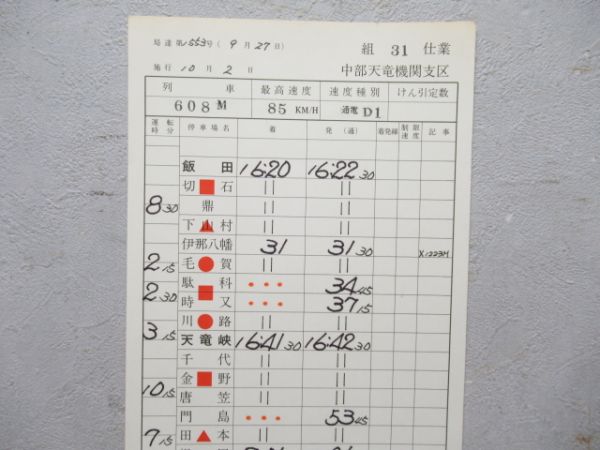 局達第1553号(9月27日) 組 31 仕業
施行10月2日 中部天竜機関支区
列 車 最高速度 速度種別 けん引定数
608M 85 KM/H 通電 D1
運転時分 停車場名 着 発(通) 着発線 制限速度 記事
飯田 16:20 16:22 30
切石 || ||
8 30 鼎 || ||
下山村 || ||
伊那八幡 31 31 30 X1223M
2 15 毛賀 || ||
駄科 ・・・ 34 45
2 30 時又 ・・・ 37 15
川路 || ||
3 15 天竜峡 16:41 30 16:42 30
千代 || ||
金野 || ||
10 15 唐笠 || ||
門島 ・・・ 53 45
7 15 田本 || ||